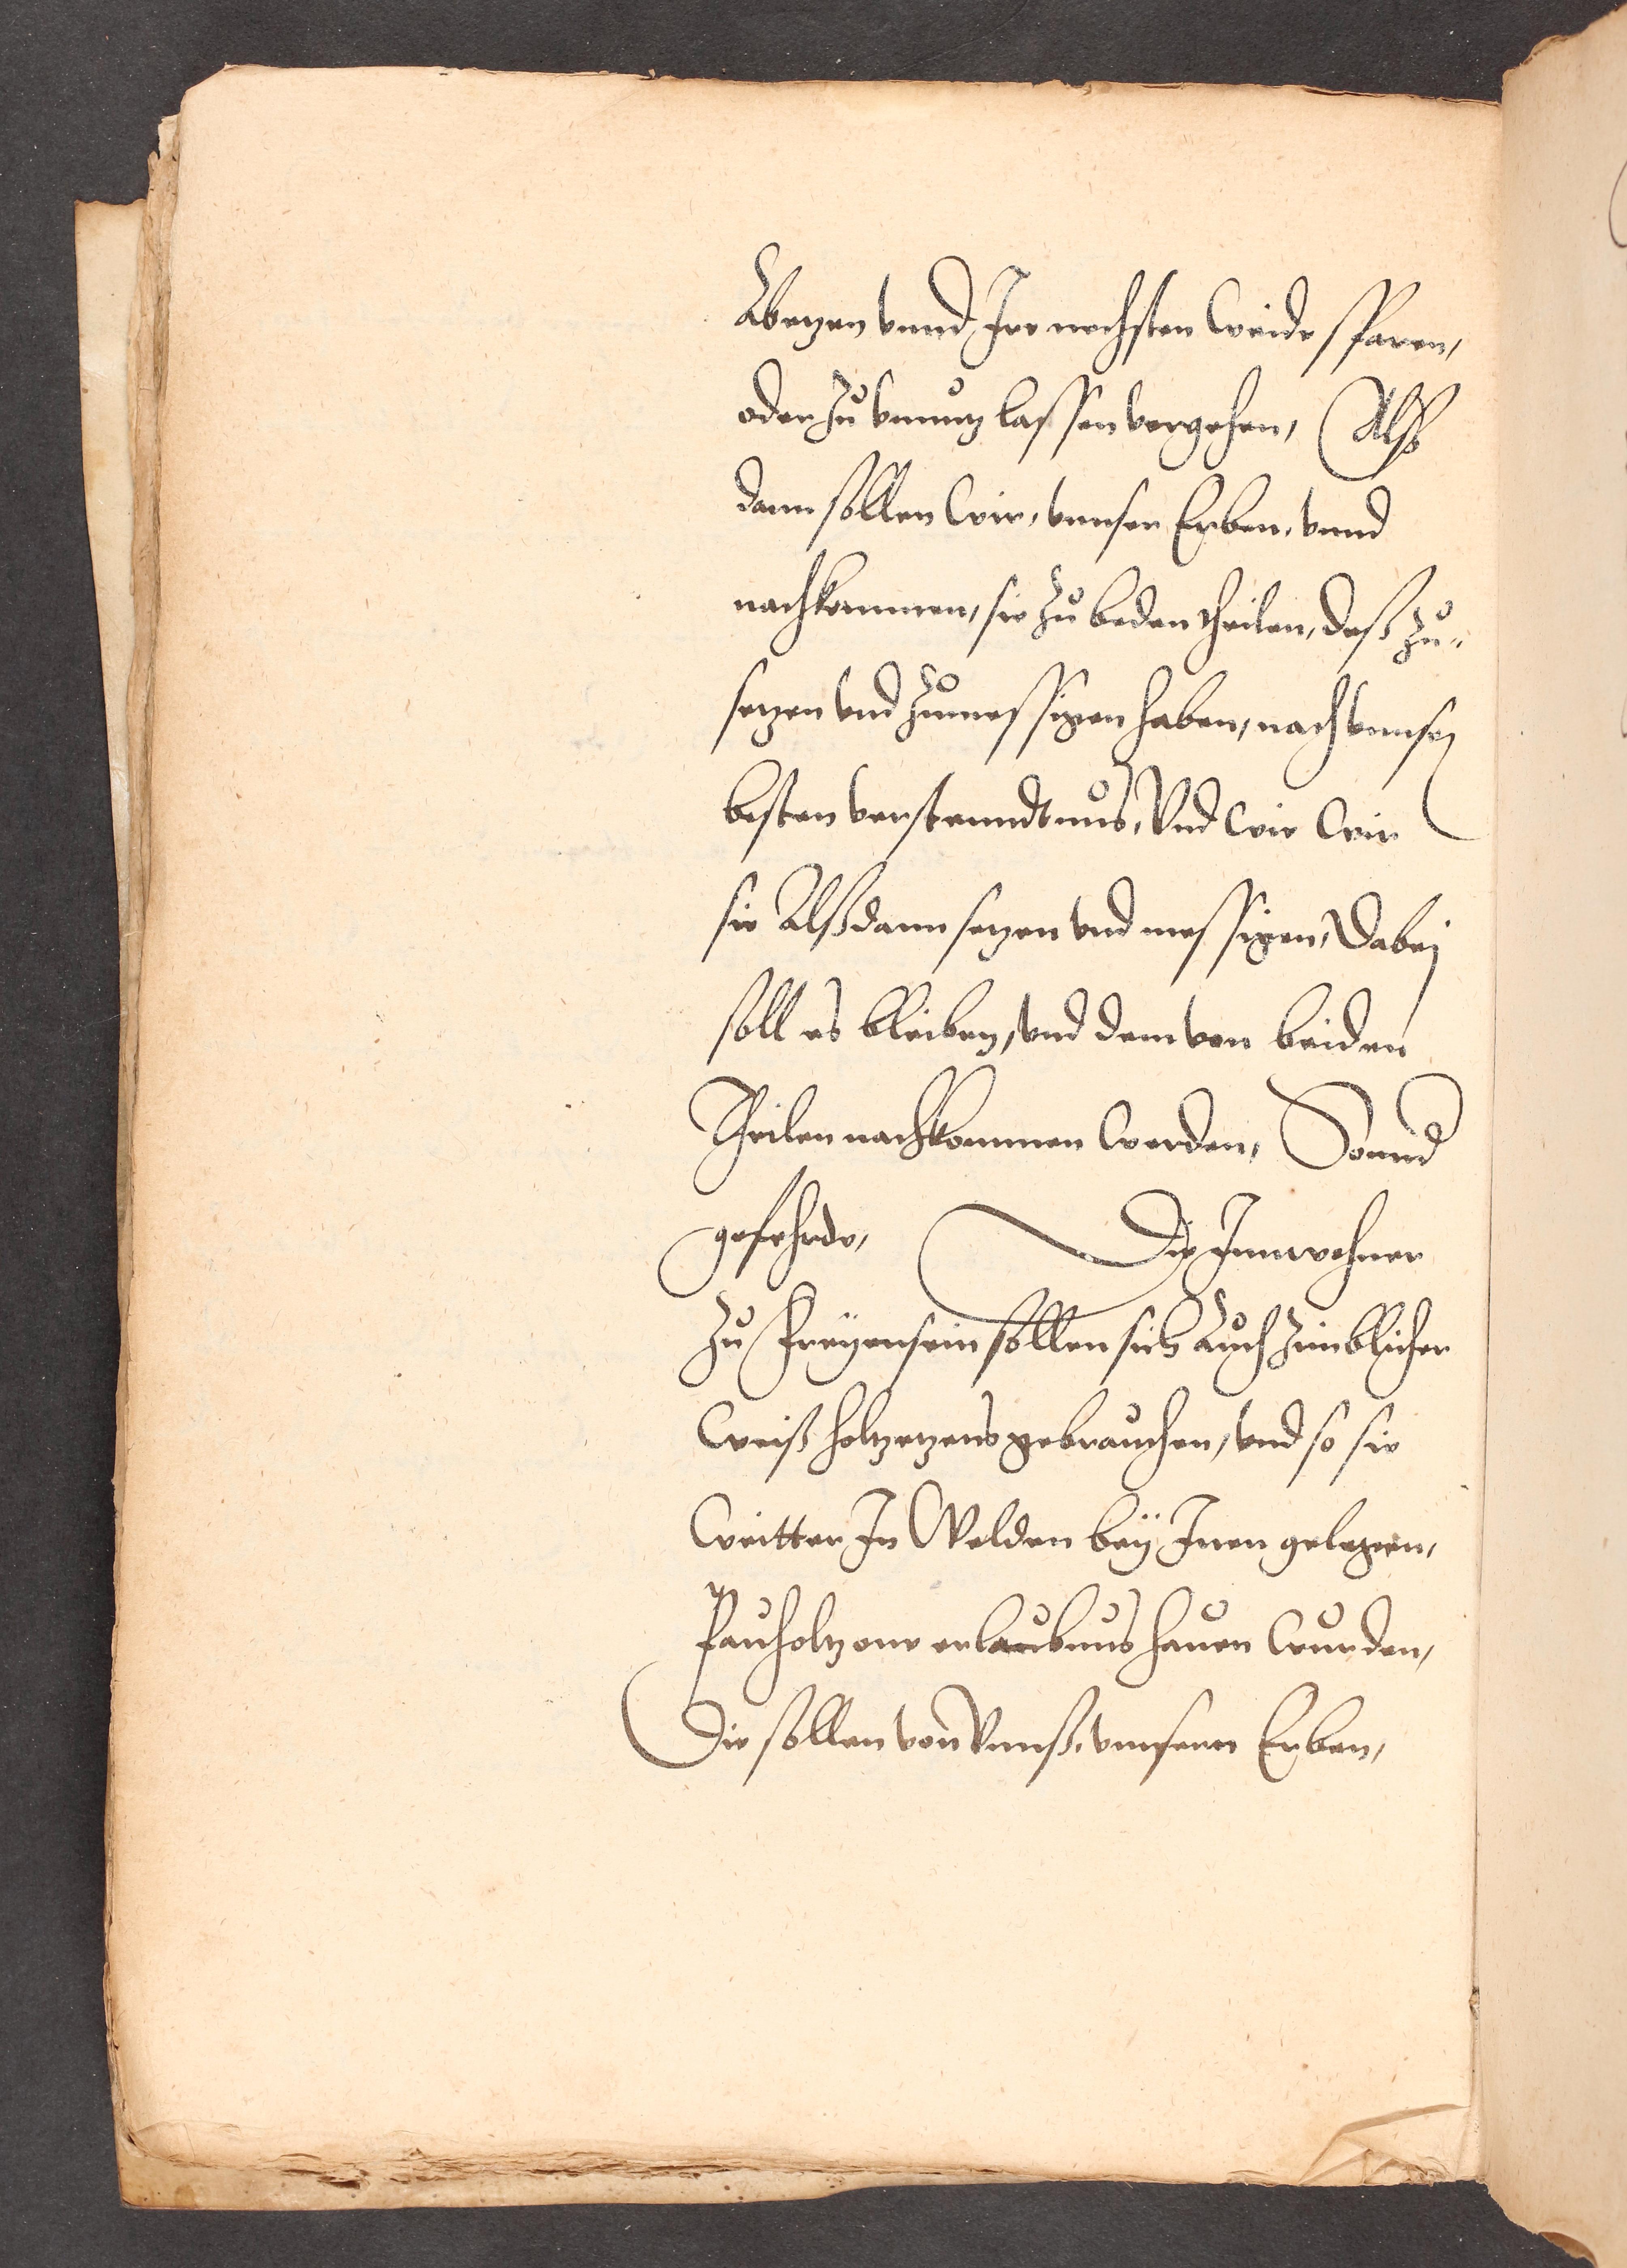 Abetzen vnnd Ire nechsten Weide sparen,
oder zu vnnutz lassen vergehen, Alß
dann sollen Wir, vnnser Erben, vnnd
nachkommen, sie zu beden theilen, deß zu-
setzen vnd zumessigen haben, nach vnnser
besten verstenndtnus, Vnd wie Wir
sie Alßdann setzen vnd messigen, Dabej
soll es bleiben, vnd dem von beiden
Theilen nachkommen werden, Sonnd
gefehrde, Die Innwohner
zu Freyensein sollen sich auch zimblicher
Weiß holtzetzens gebrauchen, vnd so sie
Weitter In Welden beÿ Inen gelegen,
Pauholtz one erlaubnus hauen wurden,
Die sollen von Vnnß, vnnsern Erben,